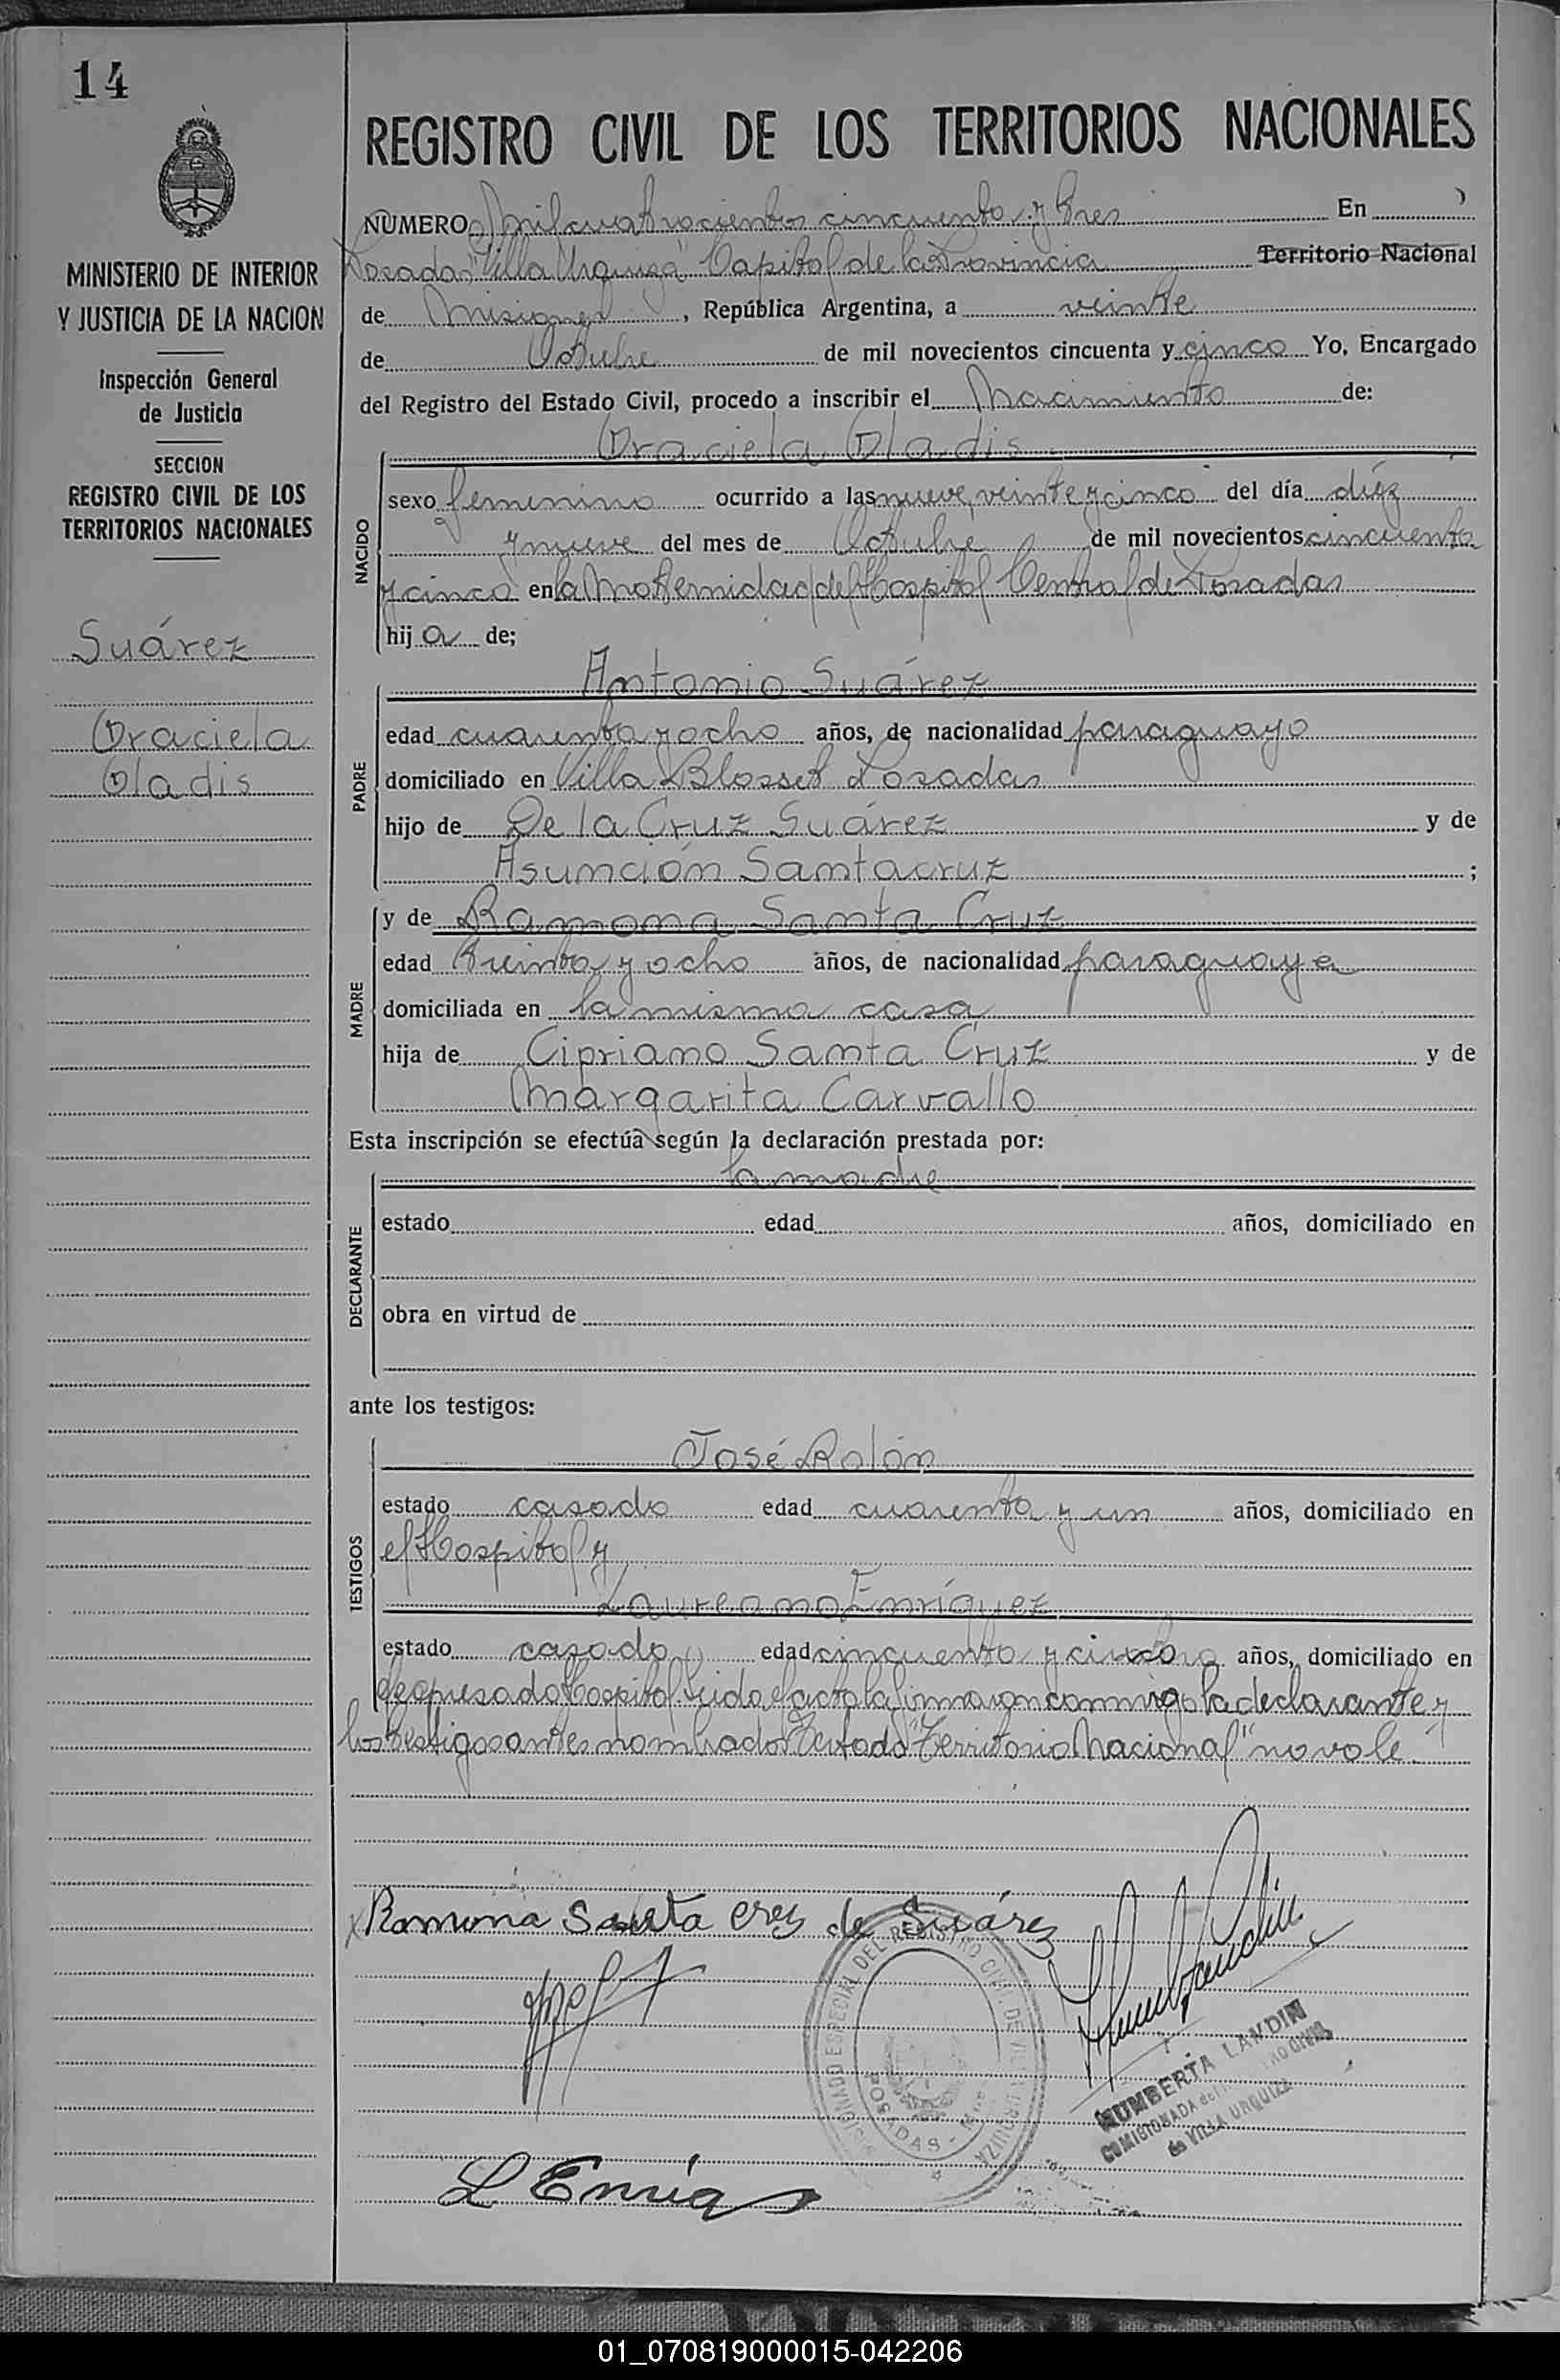 14
REGISTRO CIVIL DE LOS TERRITORIOS NACIONALES
MINISTERIO DE INTERIOR
Y JUSTICIA DE LA NACION
Inspección General
de Justicia
SECCION
REGISTRO CIVIL DE LOS
TERRITORIOS NACIONALES
Suárez
Graciela
Gladis
NUMERO Mil cuatrocientos cincuenta y tres En
Posadas "Villa Urquiza" Capital de la Provincia Territorio Nacional
de Misiones, República Argentina, a veinte
de Octubre de mil novecientos cincuenta y cinco Yo, Encargado
del Registro del Estado Civil, procedo a inscribir el Nacimiento de:
Graciela Gladis
NACIDO
sexo femenino ocurrido a las nueve, veinte y cinco del día diéz
y nueve del mes de Octubre de mil novecientos cincuenta
y cinco en la Maternidad del Hospital Central de Posadas
hija de;
Antonio Suárez
PADRE
edad cuarenta y ocho años, de nacionalidad paraguayo
domiciliado en Villa Blosset Posadas
hijo de De la Cruz Suárez y de
Asunción Santacruz ;
MADRE
y de Ramona Santa Cruz
edad treinta y ocho años, de nacionalidad paraguaya
domiciliada en la misma casa
hija de Cipriano Santa Cruz y de
Margarita Carvallo
Esta inscripción se efectúa según la declaración prestada por:
la madre
DECLARANTE
estado edad años, domiciliado en
obra en virtud de
ante los testigos:
José Rolón
TESTIGOS
estado casado edad cuarenta y un años, domiciliado en
el Hospital y
Laureano Enríquez
estado casado edad cincuenta y cuatro años, domiciliado en
el expresado Hospital. Leida el acta la firmaron conmigo la declarante y
los testigos antes nombrados. Testado "Territorio Nacional" no vale.
Ramona Santa Cruz de Suárez
L Enriq
COMISIONADO ESPECIAL DEL REGISTRO CIVIL DE VILLA URQUIZA
POSADAS
HUMBERTA LANDIN
COMISIONADA del REGISTRO CIVIL
de VILLA URQUIZA
01_070819000015-042206